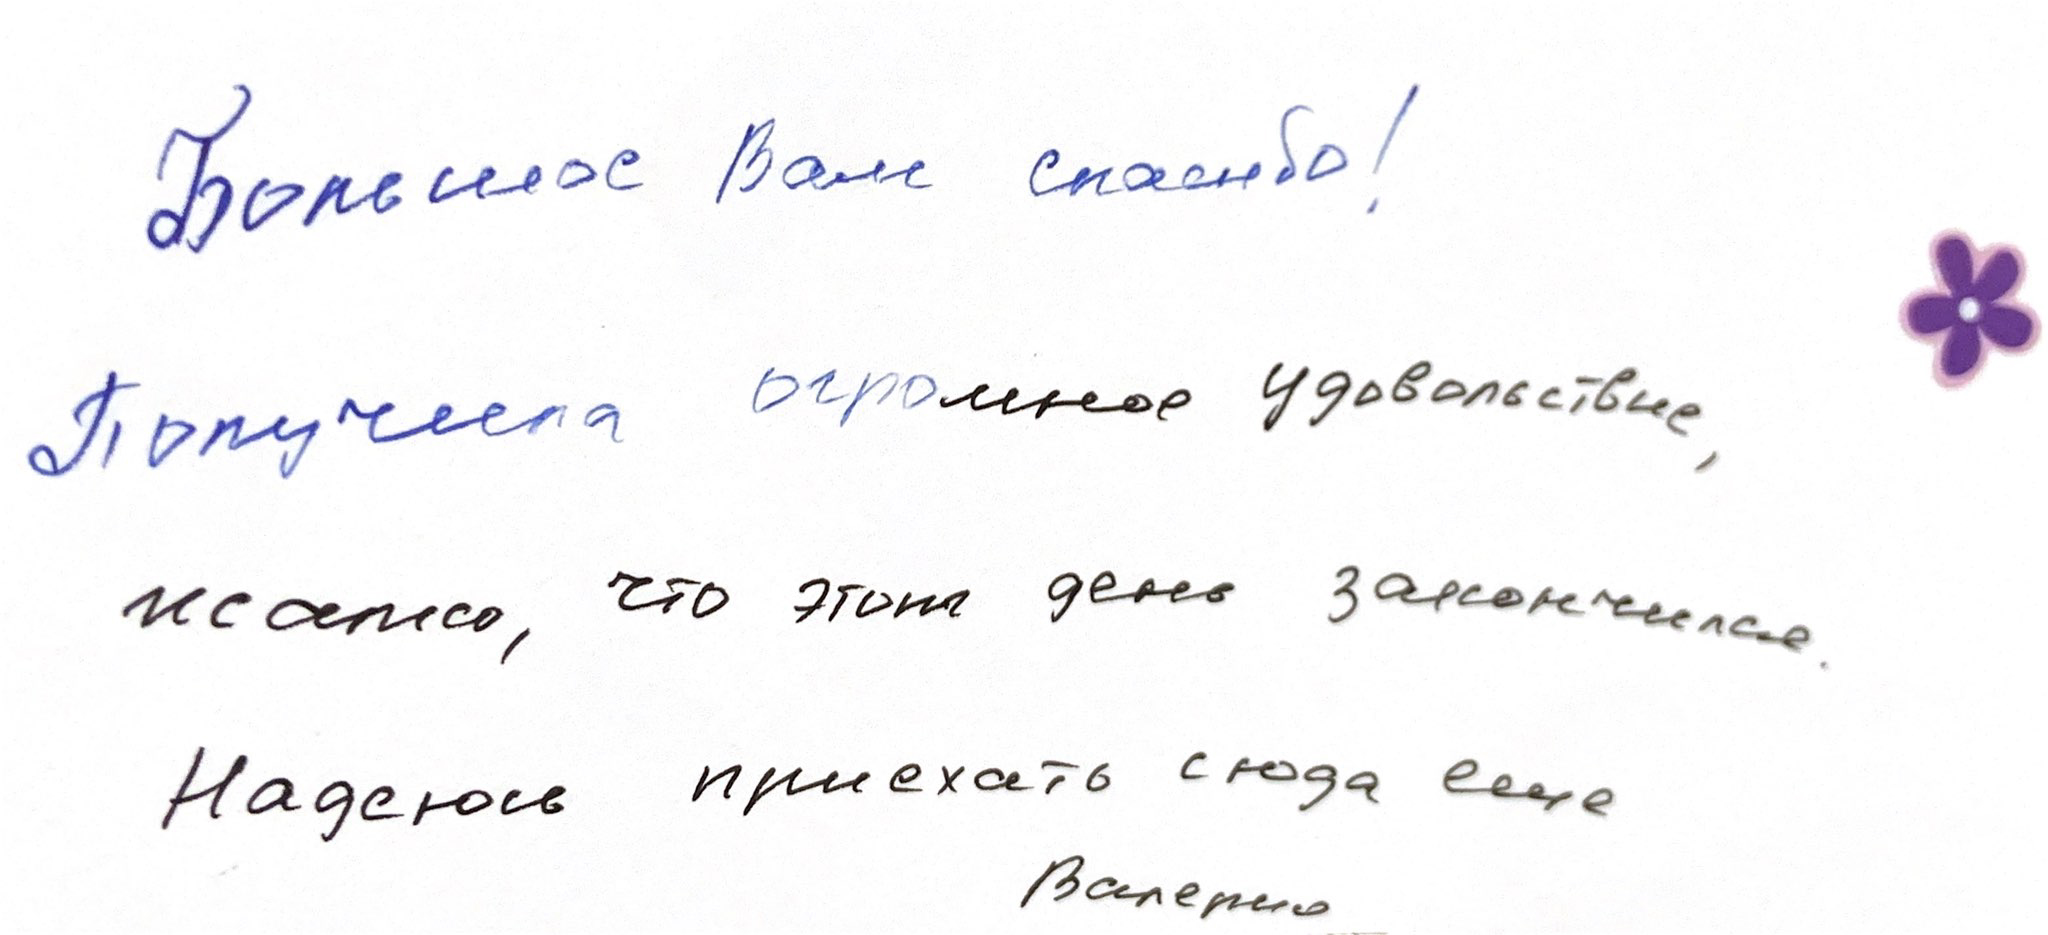 Большое Вам спасибо!
Получила огромное удовольствие,
жалко, что этот день закончился.
Надеюсь приехать сюда еще
Валерия